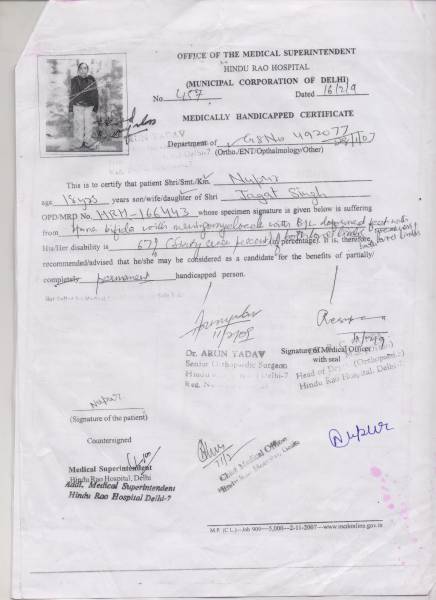 OFFICE OF THE MEDICAL SUPERINTENDENT
HINDU RAO HOSPITAL
(MUNICIPAL CORPORATION OF DELHI)
No. 457 Dated 16/2/9
MEDICALLY HANDICAPPED CERTIFICATE
Department of GSNo 492077
(Ortho./ENT/Opthalmology/Other)
This is to certify that patient Shri/Smt./Km. Nupur
age 18 yrs years son/wife/daughter of Shri Jagat Singh
OPD/MRD No. HRH-166443 whose specimen signature is given below is suffering
from Spina bifida with meningomyelocele with B/L deformed feet with
His/Her disability is 67% (Sixty seven percent) percentage). It is, therefore,
both lower limbs
recommended/advised that he/she may be considered as a candidate for the benefits of partially/
completely permanent handicapped person.
11/2/09
Dr. ARUN YADAV
Senior Orthopaedic Surgeon
Hindu Delhi-7
Reg. N
Signature of Medical Officer
with seal
Head of Hindu Rao Hospital, Delhi-7
Nupur
(Signature of the patient)
Countersigned
Medical Superintendent
Hindu Rao Hospital, Delhi
Addl. Medical Superintendent
Hindu Rao Hospital Delhi-7
Chief Medical Officer
Hindu Rao Hospital, Delhi
Nupur
M.P. (C.L.)—Job 909—5,000—2-11-2007—www.mcdonline.gov.in